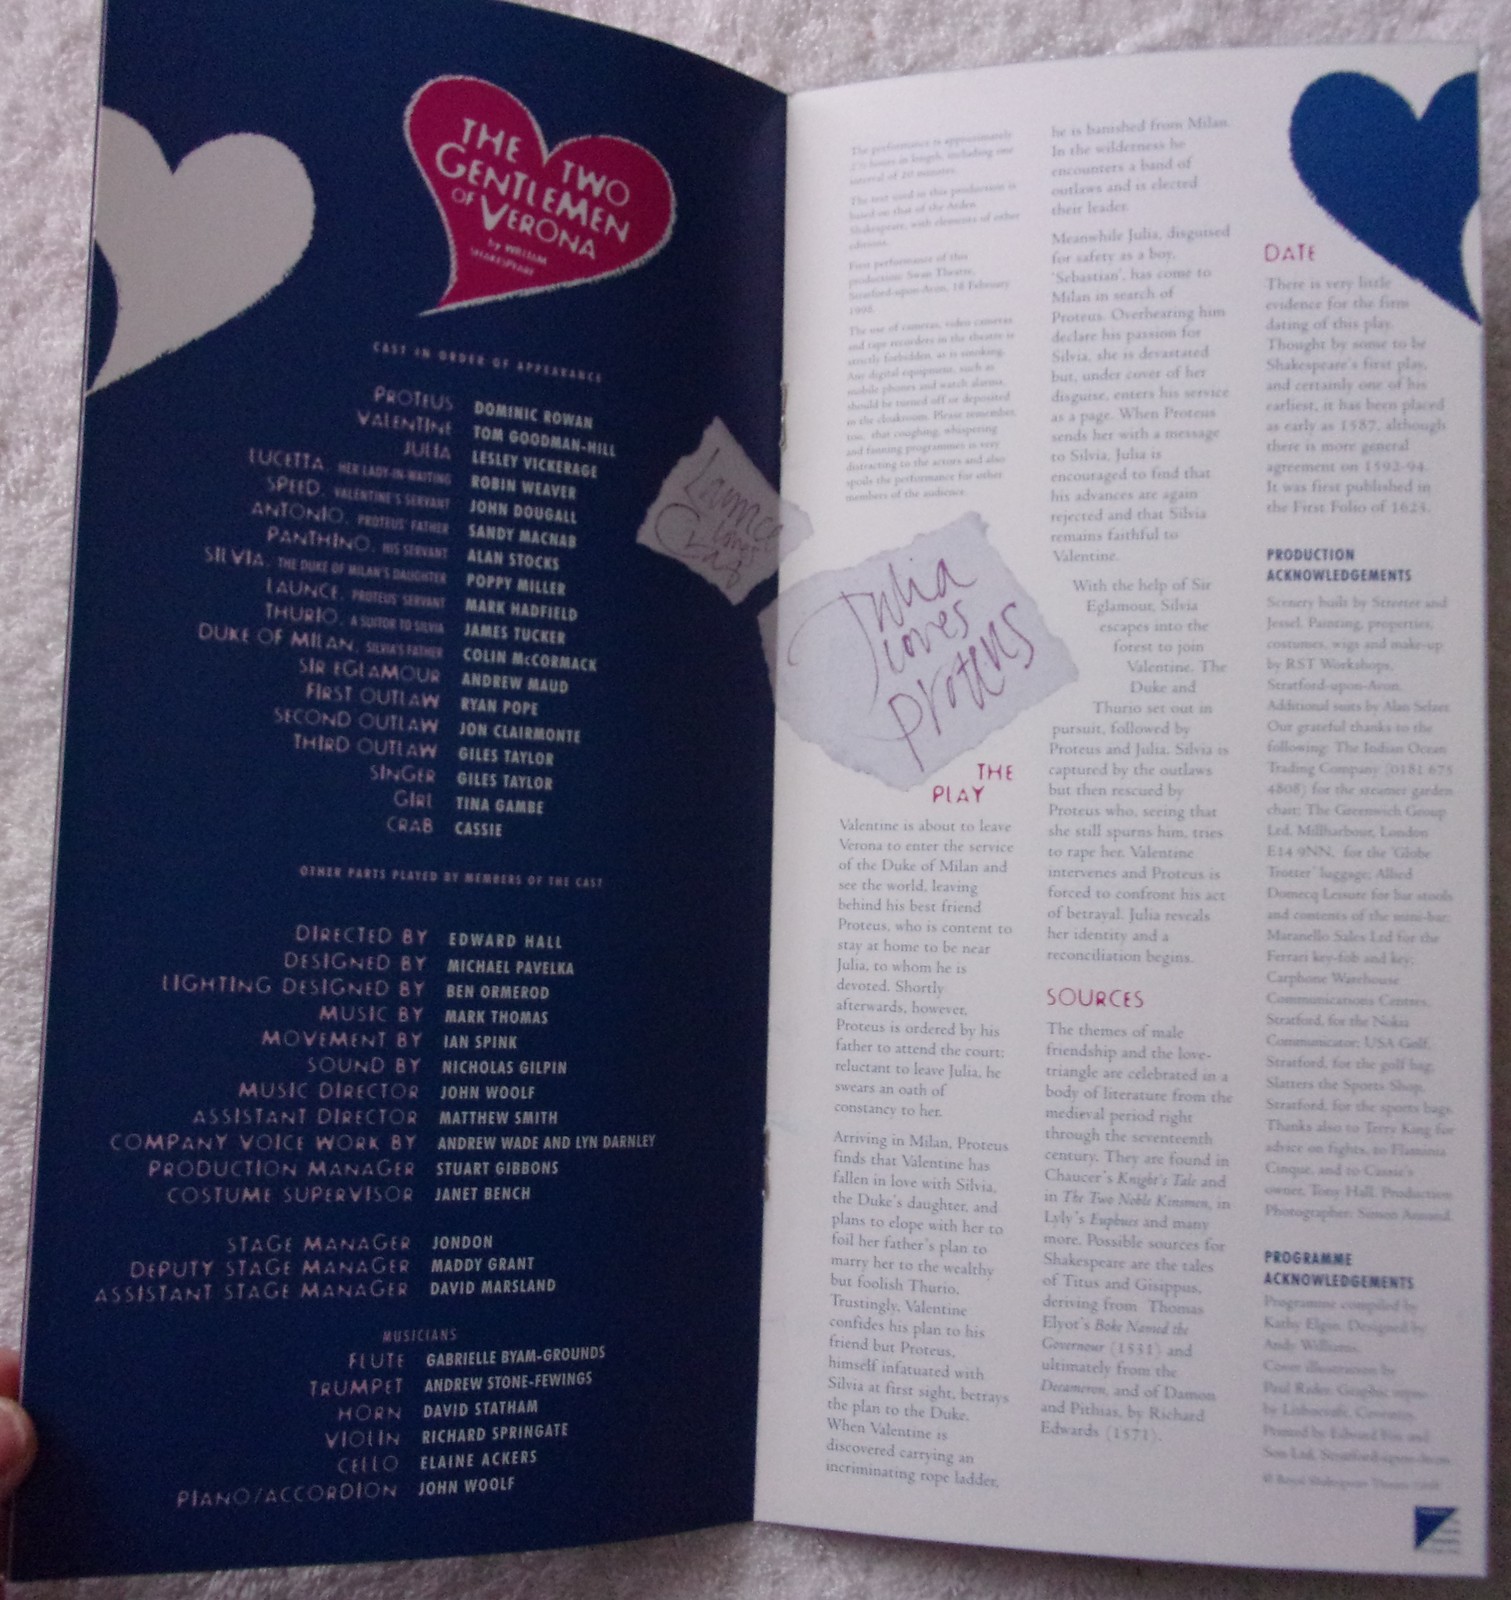 THE TWO
GENTLEMEN
OF VERONA
by WILLIAM
SHAKESPEARE
CAST IN ORDER OF APPEARANCE
PROTEUS DOMINIC ROWAN
VALENTINE TOM GOODMAN-HILL
JULIA LESLEY VICKERAGE
LUCETTA, HER LADY-IN-WAITING ROBIN WEAVER
SPEED, VALENTINE'S SERVANT JOHN DOUGALL
ANTONIO, PROTEUS' FATHER SANDY MACNAB
PANTHINO, HIS SERVANT ALAN STOCKS
SILVIA, THE DUKE OF MILAN'S DAUGHTER POPPY MILLER
LAUNCE, PROTEUS' SERVANT MARK HADFIELD
THURIO, A SUITOR TO SILVIA JAMES TUCKER
DUKE OF MILAN, SILVIA'S FATHER COLIN McCORMACK
SIR EGLAMOUR ANDREW MAUD
FIRST OUTLAW RYAN POPE
SECOND OUTLAW JON CLAIRMONTE
THIRD OUTLAW GILES TAYLOR
SINGER GILES TAYLOR
GIRL TINA GAMBE
CRAB CASSIE
OTHER PARTS PLAYED BY MEMBERS OF THE CAST
DIRECTED BY EDWARD HALL
DESIGNED BY MICHAEL PAVELKA
LIGHTING DESIGNED BY BEN ORMEROD
MUSIC BY MARK THOMAS
MOVEMENT BY IAN SPINK
SOUND BY NICHOLAS GILPIN
MUSIC DIRECTOR JOHN WOOLF
ASSISTANT DIRECTOR MATTHEW SMITH
COMPANY VOICE WORK BY ANDREW WADE AND LYN DARNLEY
PRODUCTION MANAGER STUART GIBBONS
COSTUME SUPERVISOR JANET BENCH
STAGE MANAGER JONDON
DEPUTY STAGE MANAGER MADDY GRANT
ASSISTANT STAGE MANAGER DAVID MARSLAND
MUSICIANS
FLUTE GABRIELLE BYAM-GROUNDS
TRUMPET ANDREW STONE-FEWINGS
HORN DAVID STATHAM
VIOLIN RICHARD SPRINGATE
CELLO ELAINE ACKERS
PIANO/ACCORDION JOHN WOOLF
Launce
loves
Crab
Julia
loves
proteus
The performance is approximately
2½ hours in length, including one
interval of 20 minutes.
The text used in this production is
based on that of the Arden
Shakespeare, with elements of other
editions.
First performance of this
production: Swan Theatre,
Stratford-upon-Avon, 18 February
1998.
The use of cameras, video cameras
and tape recorders in the theatre is
strictly forbidden, as is smoking.
Any digital equipment, such as
mobile phones and watch alarms,
should be turned off or deposited
in the cloakroom. Please remember,
too, that coughing, whispering
and fanning programmes is very
distracting to the actors and also
spoils the performance for other
members of the audience.
THE
PLAY
Valentine is about to leave
Verona to enter the service
of the Duke of Milan and
see the world, leaving
behind his best friend
Proteus, who is content to
stay at home to be near
Julia, to whom he is
devoted. Shortly
afterwards, however,
Proteus is ordered by his
father to attend the court;
reluctant to leave Julia, he
swears an oath of
constancy to her.
Arriving in Milan, Proteus
finds that Valentine has
fallen in love with Silvia,
the Duke's daughter, and
plans to elope with her to
foil her father's plan to
marry her to the wealthy
but foolish Thurio.
Trustingly, Valentine
confides his plan to his
friend but Proteus,
himself infatuated with
Silvia at first sight, betrays
the plan to the Duke.
When Valentine is
discovered carrying an
incriminating rope ladder,
he is banished from Milan.
In the wilderness he
encounters a band of
outlaws and is elected
their leader.
Meanwhile Julia, disguised
for safety as a boy,
'Sebastian', has come to
Milan in search of
Proteus. Overhearing him
declare his passion for
Silvia, she is devastated
but, under cover of her
disguise, enters his service
as a page. When Proteus
sends her with a message
to Silvia, Julia is
encouraged to find that
his advances are again
rejected and that Silvia
remains faithful to
Valentine.
With the help of Sir
Eglamour, Silvia
escapes into the
forest to join
Valentine. The
Duke and
Thurio set out in
pursuit, followed by
Proteus and Julia. Silvia is
captured by the outlaws
but then rescued by
Proteus who, seeing that
she still spurns him, tries
to rape her. Valentine
intervenes and Proteus is
forced to confront his act
of betrayal. Julia reveals
her identity and a
reconciliation begins.
SOURCES
The themes of male
friendship and the love-
triangle are celebrated in a
body of literature from the
medieval period right
through the seventeenth
century. They are found in
Chaucer's Knight's Tale and
in The Two Noble Kinsmen, in
Lyly's Euphues and many
more. Possible sources for
Shakespeare are the tales
of Titus and Gisippus,
deriving from Thomas
Elyot's Boke Named the
Governour (1531) and
ultimately from the
Decameron, and of Damon
and Pithias, by Richard
Edwards (1571).
DATE
There is very little
evidence for the firm
dating of this play.
Thought by some to be
Shakespeare's first play,
and certainly one of his
earliest, it has been placed
as early as 1587, although
there is more general
agreement on 1592-94.
It was first published in
the First Folio of 1623.
PRODUCTION
ACKNOWLEDGEMENTS
Scenery built by Streeter and
Jessel. Painting, properties,
costumes, wigs and make-up
by RST Workshops,
Stratford-upon-Avon.
Additional suits by Alan Selzer.
Our grateful thanks to the
following: The Indian Ocean
Trading Company (0181 675
4808) for the steamer garden
chair; The Greenwich Group
Ltd, Millharbour, London
E14 9NN, for the 'Globe
Trotter' luggage; Allied
Domecq Leisure for bar stools
and contents of the mini-bar;
Maranello Sales Ltd for the
Ferrari key-fob and key;
Carphone Warehouse
Communications Centres,
Stratford, for the Nokia
Communicator; USA Golf,
Stratford, for the golf bag;
Slatters the Sports Shop,
Stratford, for the sports bags.
Thanks also to Terry King for
advice on fights, to Flaminia
Cinque, and to Cassie's
owner, Tony Hall. Production
Photographer: Simon Annand.
PROGRAMME
ACKNOWLEDGEMENTS
Programme compiled by
Kathy Elgin. Designed by
Andy Williams.
Cover illustration by
Paul Rider. Graphic repro
by Lithocraft, Coventry.
Printed by Edward Fox and
Son Ltd, Stratford-upon-Avon.
© Royal Shakespeare Theatre 1998